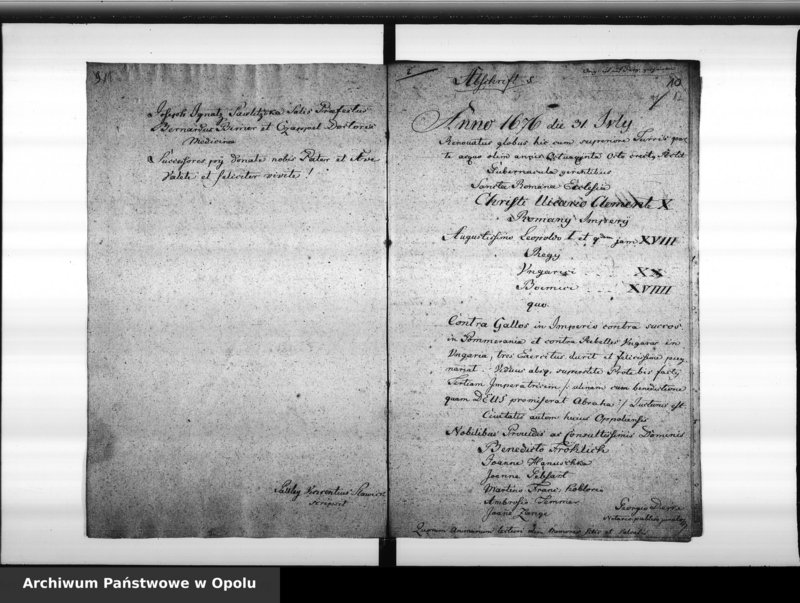 Joseph Ignatz Sawlitzka Salis Praefectus
Bernardus Birner et Czappel Doctores
Medicina
Successores prij donate nobis Pater et Ave
Valete et feliciter vivite!
Laurentius Slawick
scripsit
Abschrift
Anno 1676 die 31 July
Renovatus globus hic cum supremore Turris par
te acquo olim
Gubernacula gerentibus
Sancta Romana Ecclesia
Christi Uicario Clemente X
Romany Impery
Augustissimo Leopoldo I et qdem jam XVIII
Regy
Vngariei XX
Boemiei XVIIII
quo
Contra Gallos in Imperio contra suecos
in Pommerania et contra Rebelles Vngaros in
Vngaria, tres Exercitus duxit et felicissime pug
nariat. Viduus absq. superstite Prole bis factq
tertiam Imperatricem /: utinam cum benedictione
quam DEUS promiserat Abraha :/ ducturus est
Civitatis autem huius Oppoliensis
Nobilibus Providis ac Consultissimis Dominis
Benedicto Fröhlich
Joanne Hanuschka
Joanne Gebhart
Martino Franc Koklone
Ambrosio Temmer
Joane Zange
Georgio
Notario publico jurato
Quorum Animarum lector
Archiwum Państwowe w Opolu